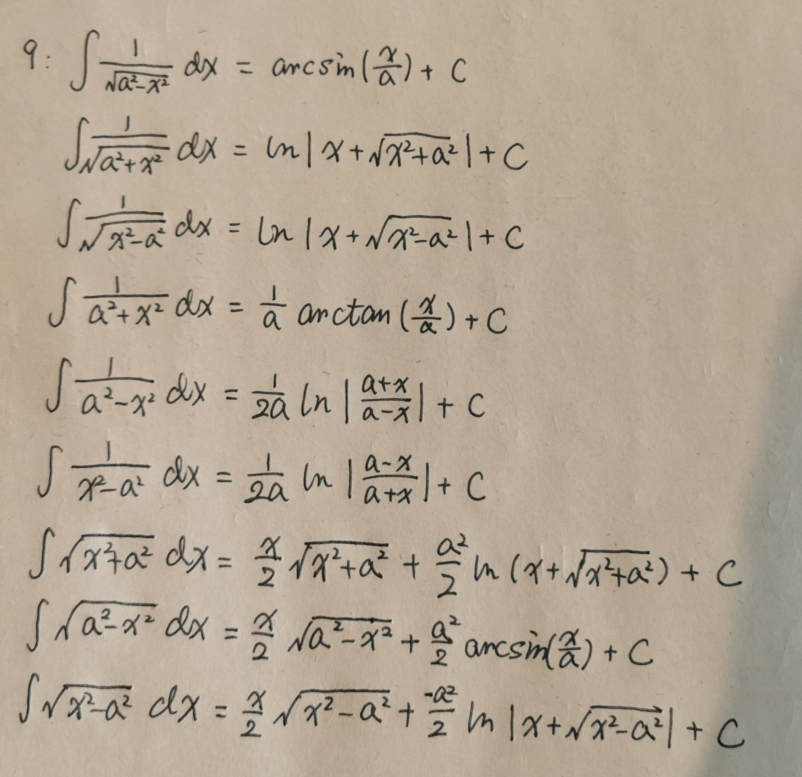 9: ∫ 1/√(a²-x²) dx = arcsin(x/a) + C
∫ 1/√(a²+x²) dx = ln|x+√(x²+a²)| + C
∫ 1/√(x²-a²) dx = ln|x+√(x²-a²)| + C
∫ 1/(a²+x²) dx = 1/a arctan(x/a) + C
∫ 1/(a²-x²) dx = 1/2a ln|(a+x)/(a-x)| + C
∫ 1/(x²-a²) dx = 1/2a ln|(a-x)/(a+x)| + C
∫ √(x²+a²) dx = x/2 √(x²+a²) + a²/2 ln(x+√(x²+a²)) + C
∫ √(a²-x²) dx = x/2 √(a²-x²) + a²/2 arcsin(x/a) + C
∫ √(x²-a²) dx = x/2 √(x²-a²) + -a²/2 ln|x+√(x²-a²)| + C